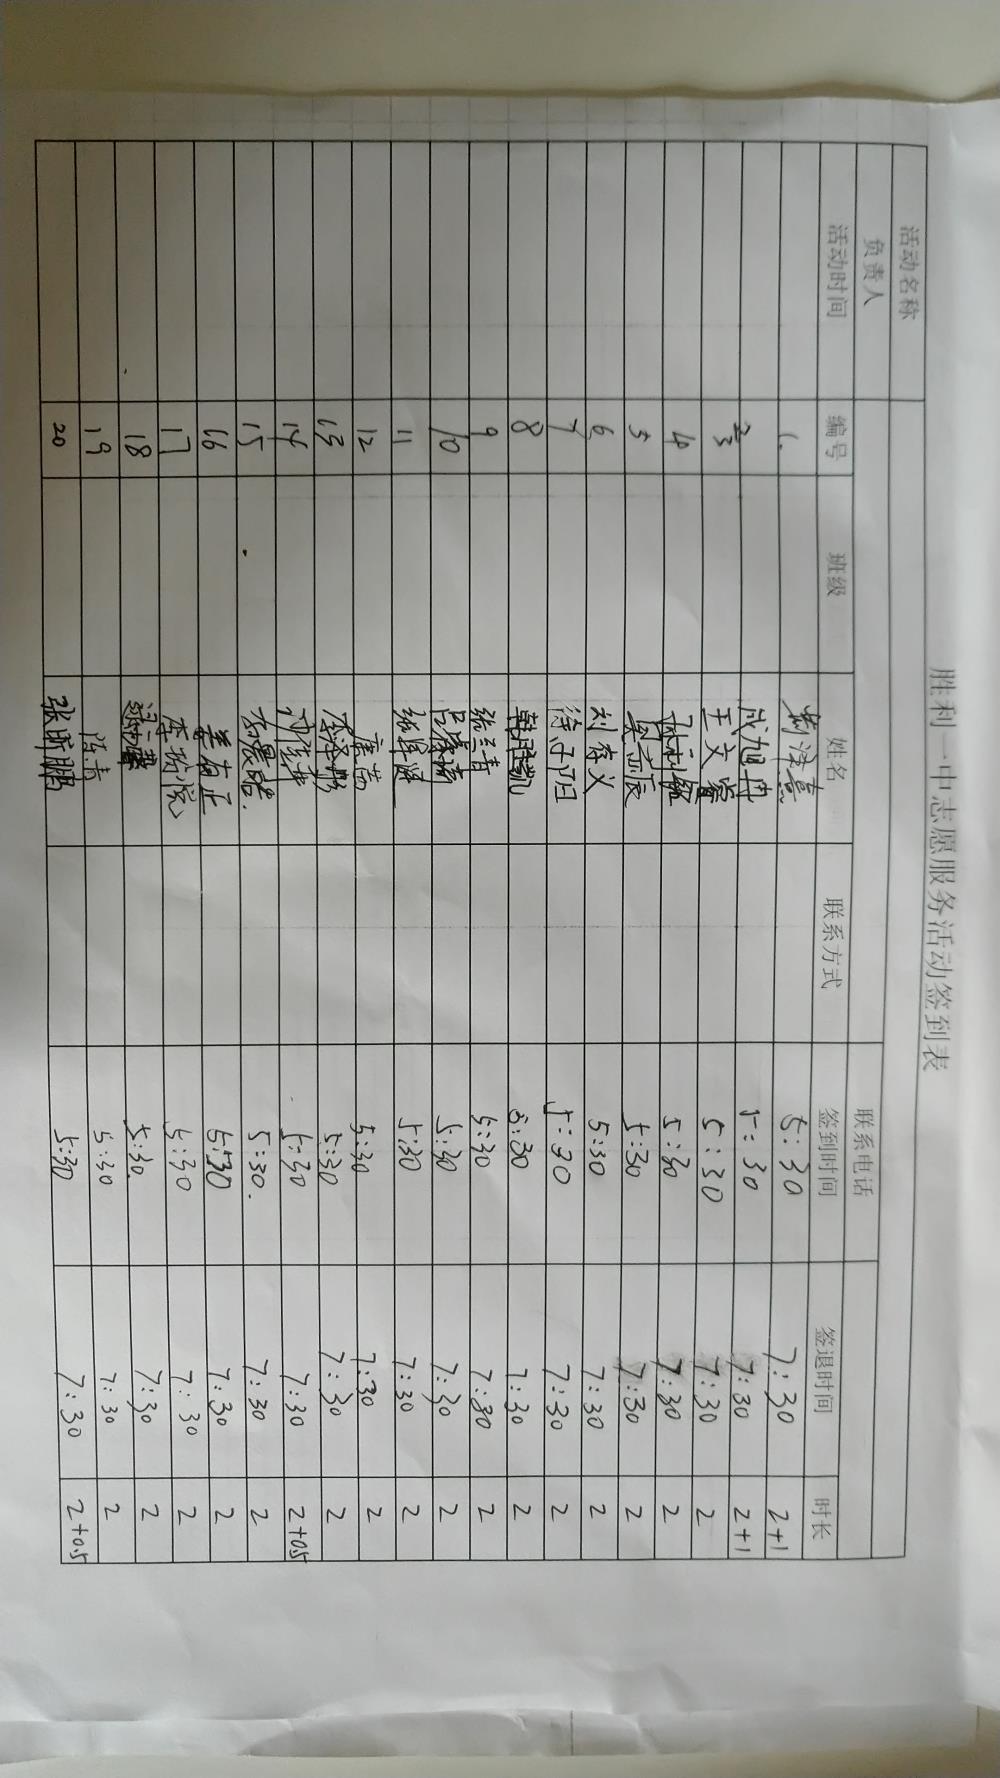 胜利一中志愿服务活动签到表
活动名称
负责人 联系电话
活动时间 编号 班级 姓名 联系方式 签到时间 签退时间 时长
1. 5:30 7:30 2+1
5:30 7:30 2+1
3 王文 5:30 7:30 2
4 5:30 7:30 2
5 5:30 7:30 2
6 刘存义 5:30 7:30 2
7 徐子阳 5:30 7:30 2
8 韩胜凯 5:30 7:30 2
9 张兰青 5:30 7:30 2
10 5:30 7:30 2
11 5:30 7:30 2
12 5:30 7:30 2
13 5:30 7:30 2
14 5:30 7:30 2+0.5
15 5:30. 7:30 2
16 姜有正 5:30 7:30 2
17 李玢悦 5:30 7:30 2
18 5:30. 7:30 2
19 陈青 5:30 7:30 2
20 张昕鹏 5:30 7:30 2+0.5